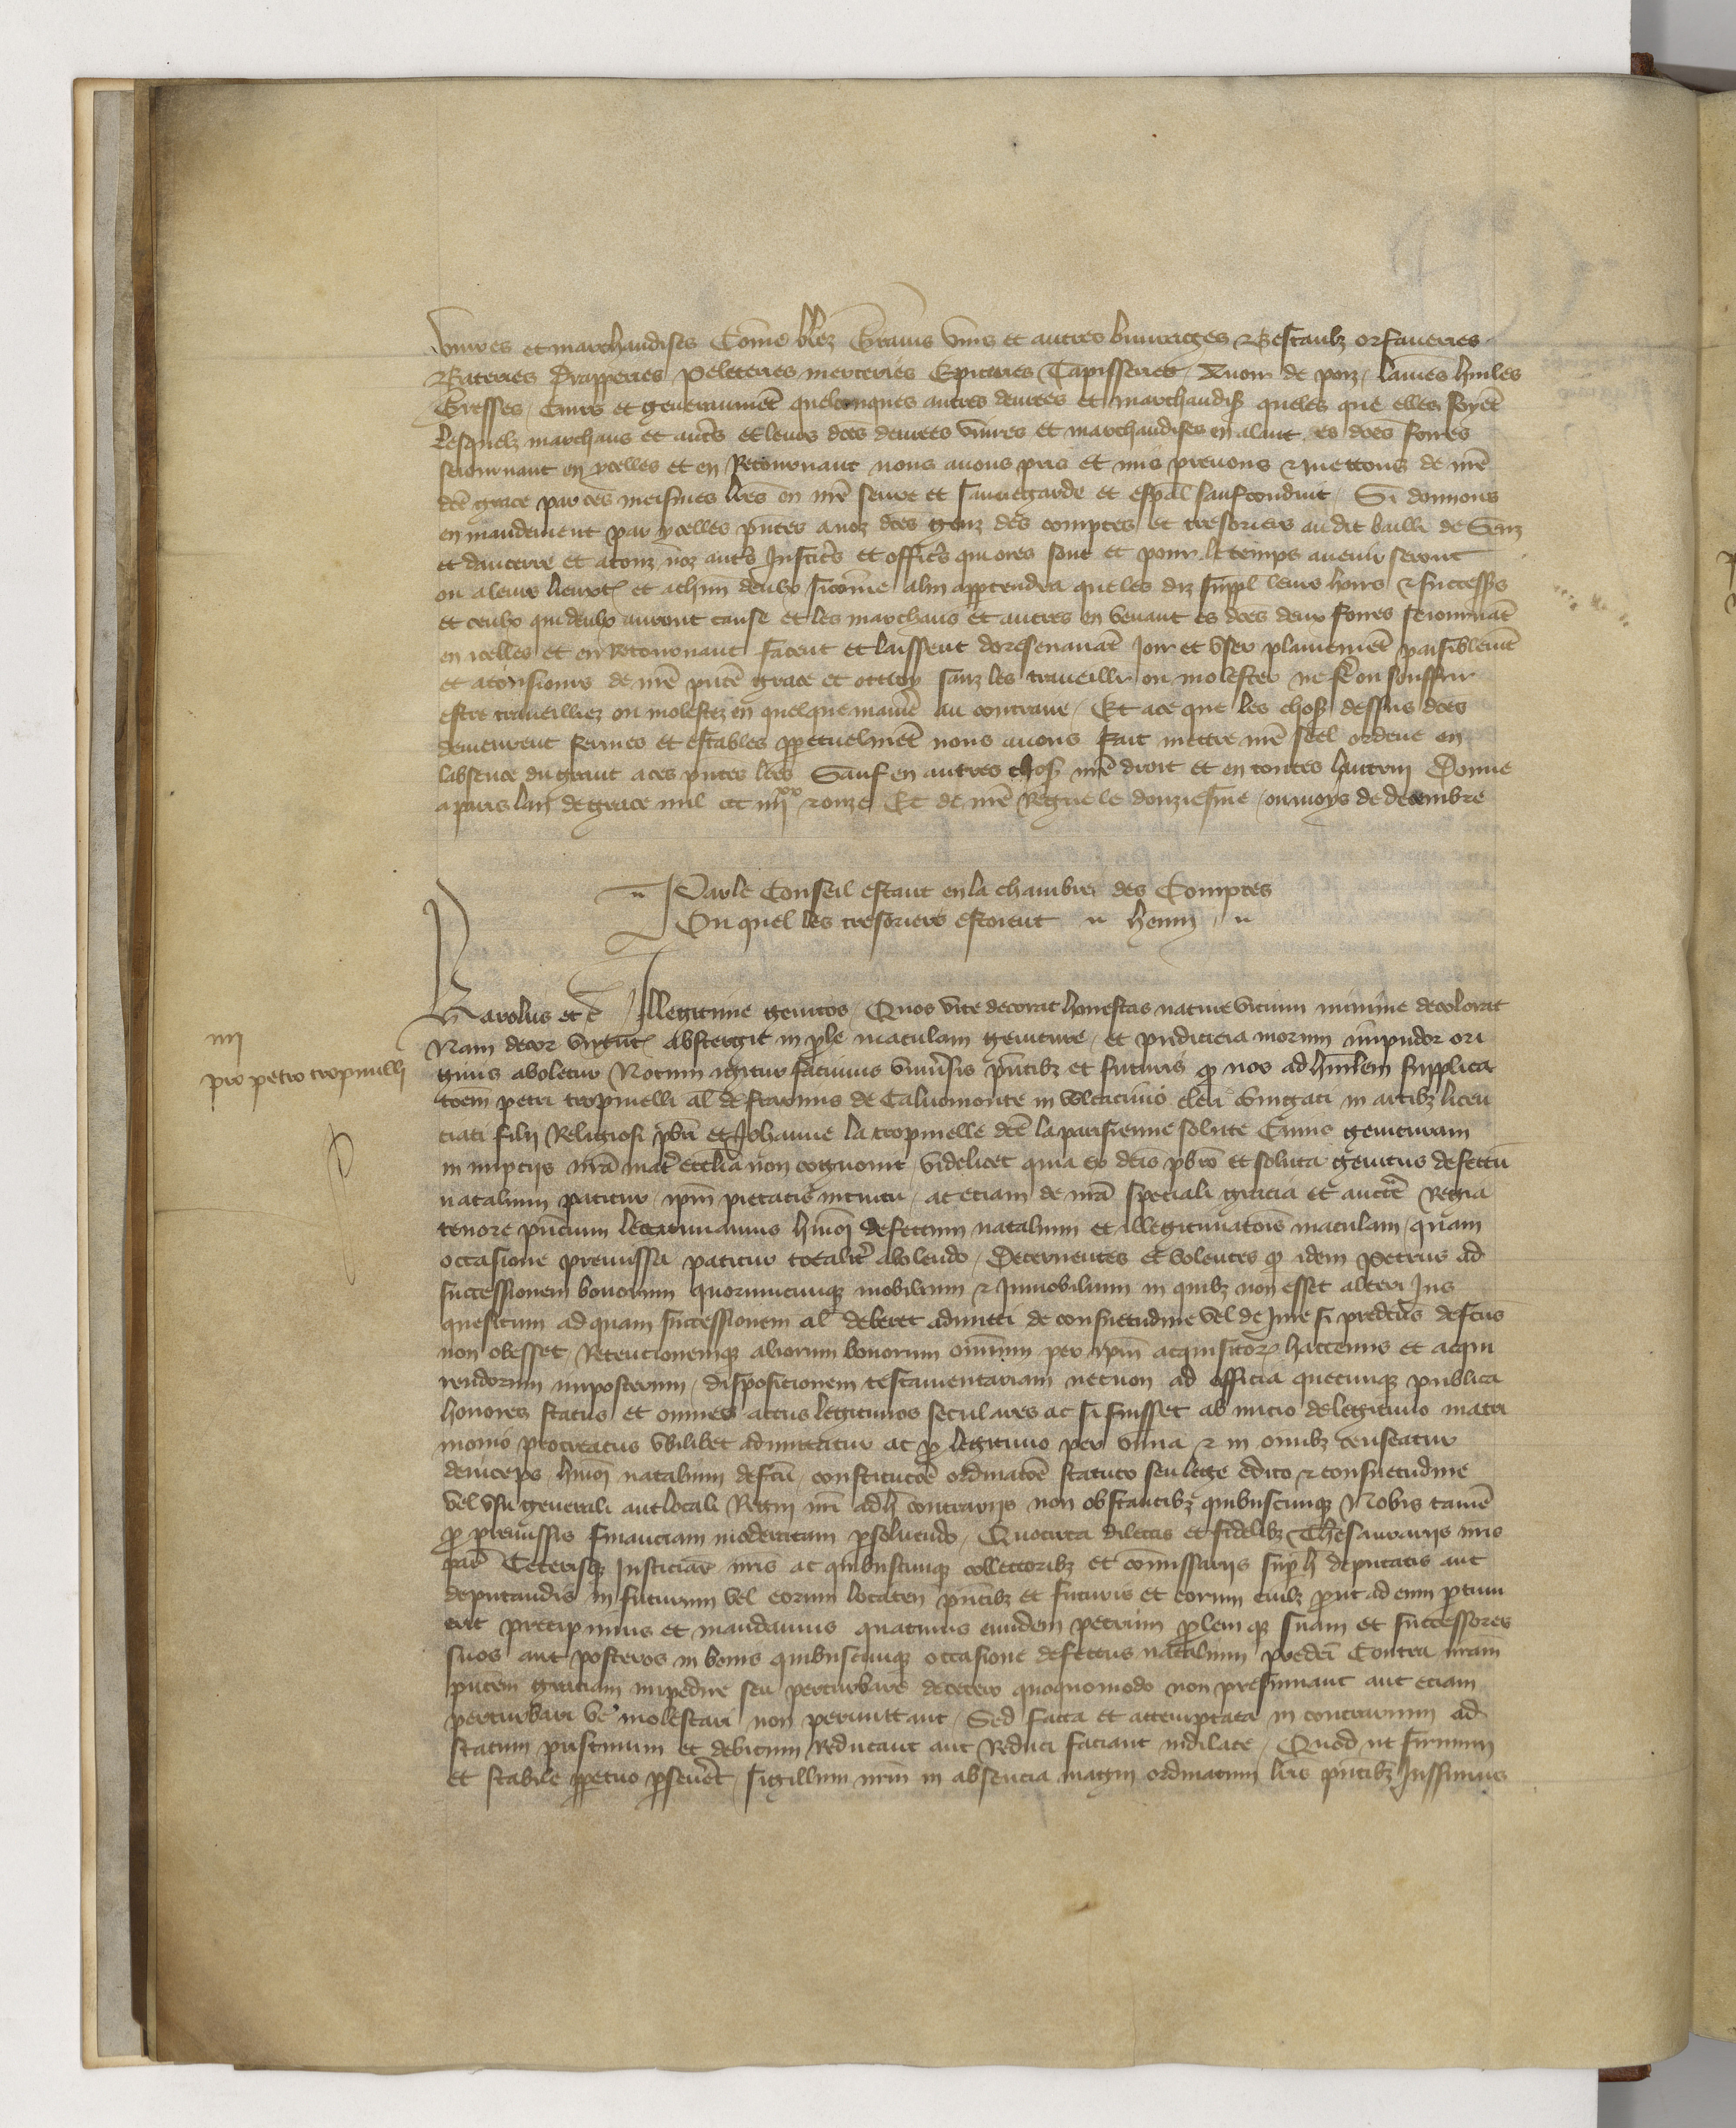 vivres et marchandises Come blez Grains vins et autres buvrages & Bestaulx orfaveries
Bateries Drapperies Peleteries merceries Epiceries Tapisseries Avoir de poiz laines huiles
Gresses Cuirs et generaument quelconques autres denrees et marchandises queles que elles soyent
lesquelz marchans et autres et leurs dictes denrees vivres et marchandises en alant es dictes foires
seiournant en ycelles et en Retournant nous avons pris et mis prenons & mettons de nre
dce grace par ces meismes lres en nre seure et sauvegarde et especial saufconduit Si donnons
en mandement par ycelles pntes a noz dces genz des comptes et tresoriers au dit bailli de Senz
et daucerre et a touz noz autres Justiciers et officiers qui ores sont et pour le temps avenir seront
ou a leurs lieuxten et a chun deulx sicome a lui appartendra que les diz suppl leurs hoirs & successeurs
et ceulx qui deulx auront cause et les marchans et autres en venant es dces deux foires seiournat
en icelles et en Retournant facent et laissent doresenavant Joir et user plainement paisiblement
et a tousiours de nre pnte grace et ottroy sanz les traveillir ou molester ne fere ou souffrir
estre traveilliez ou molestez en quelque maniere au contraire Et a ce que les choses dessus dces
demeurent fermes et estables perpetuelment nous avons fait mettre nre seel ordene en
labsence du grant a ces pntes lres Sauf en autres choses nre droit et en toutes lautruy Donne
a paris lan de grace mil ccc iiij xx & onze Et de nre Regne le douziesme ou moys de decembre
Par le Conseil estant en la chambre des Comptes
Ou quel les tresoriers estoient henin
Karolus etc Illegitime genitos Quos vite decorat honestas nature vicium minime decolorat
iiij
Nam decor virtutum abstergit in prole maculam geniture et pudicicia morum impudor ori
pro petro tropinelli
ginis aboletur Notum igitur facimus universis pntibz et futuris qd nos ad humilem supplica
toem petri tropinelli al de starnus de Calvomonte in clerici in artibz licen
ciati filij Religiosi pbri et Johanne la tropinelle dce la parisienne solute Cuius genituram
in nupcijs nra mater ecclia non cognovit videlicet quia ex dcto pbro et soluta genitus defectu
natalium patitur ipm pietatis intuitu ac eciam de nra speciali gracia et aucte Regia
tenore pncium legitimamus huiusmodi defectum natalium et illegitimatois maculam quam
occasione premissa patitur totaliter abolendo Decernentes et volentes qd idem Petrus ad
successionem bonorum quorumcunque mobilium & Inmobilium in quibz non esset alteri Jus
quesitum ad quam successionem al deberet admitti de consuetudine vel de Jure si predictus defectus
non obesset Retencionemque aliorum bonorum omnium per ipm acquisitorum hactenus et acqui
rendorum imposterum disposicionem testamentariam necnon ad officia quecunque publica
honores status et omnes actus legitimos seculares ac si fuisset ab inicio de legitimo matri
monio procreatus ubilibet admittatur ac pro legitimo per omnia & in omibz censeatur
deinceps huiusmodi natalium defectu constitucoe ordinacoe statuto seu lege edicto & consuetudine
vel usu generali aut locali Regni nri ad hec contrarijs non obstantibz quibuscunque Nobis tamen
pro premissis financiam moderatam persolvendo Quocirca dilectis et fidelibz Thesaurarijs nris
par Ceterisque Justiciar nris ac quibuscunque collectoribz et comissarijs super hoc deputatis aut
deputandis in futurum vel eorum locaten pntibz et futuris et eorum cuilibet prout ad eum pertinu
erit precipimus et mandamus quatinus eundem petrum prolemque suam et successores
suos aut posteros in bonis quibuscunque occasione defectus natalium predcti Contra nram
pntem graciam impedire seu perturbare de cetero quoquomodo non presumant aut eciam
perturbari vel molestari non permittant Sed facta et attemptata in contrarium ad
statum pristinum et debitum Reducant aut Reduci faciant indilate Quod ut firmum
et stabile perpetuo perseveret Sigillum nrm in absencia magni ordinatum lris pntibz Jussimus